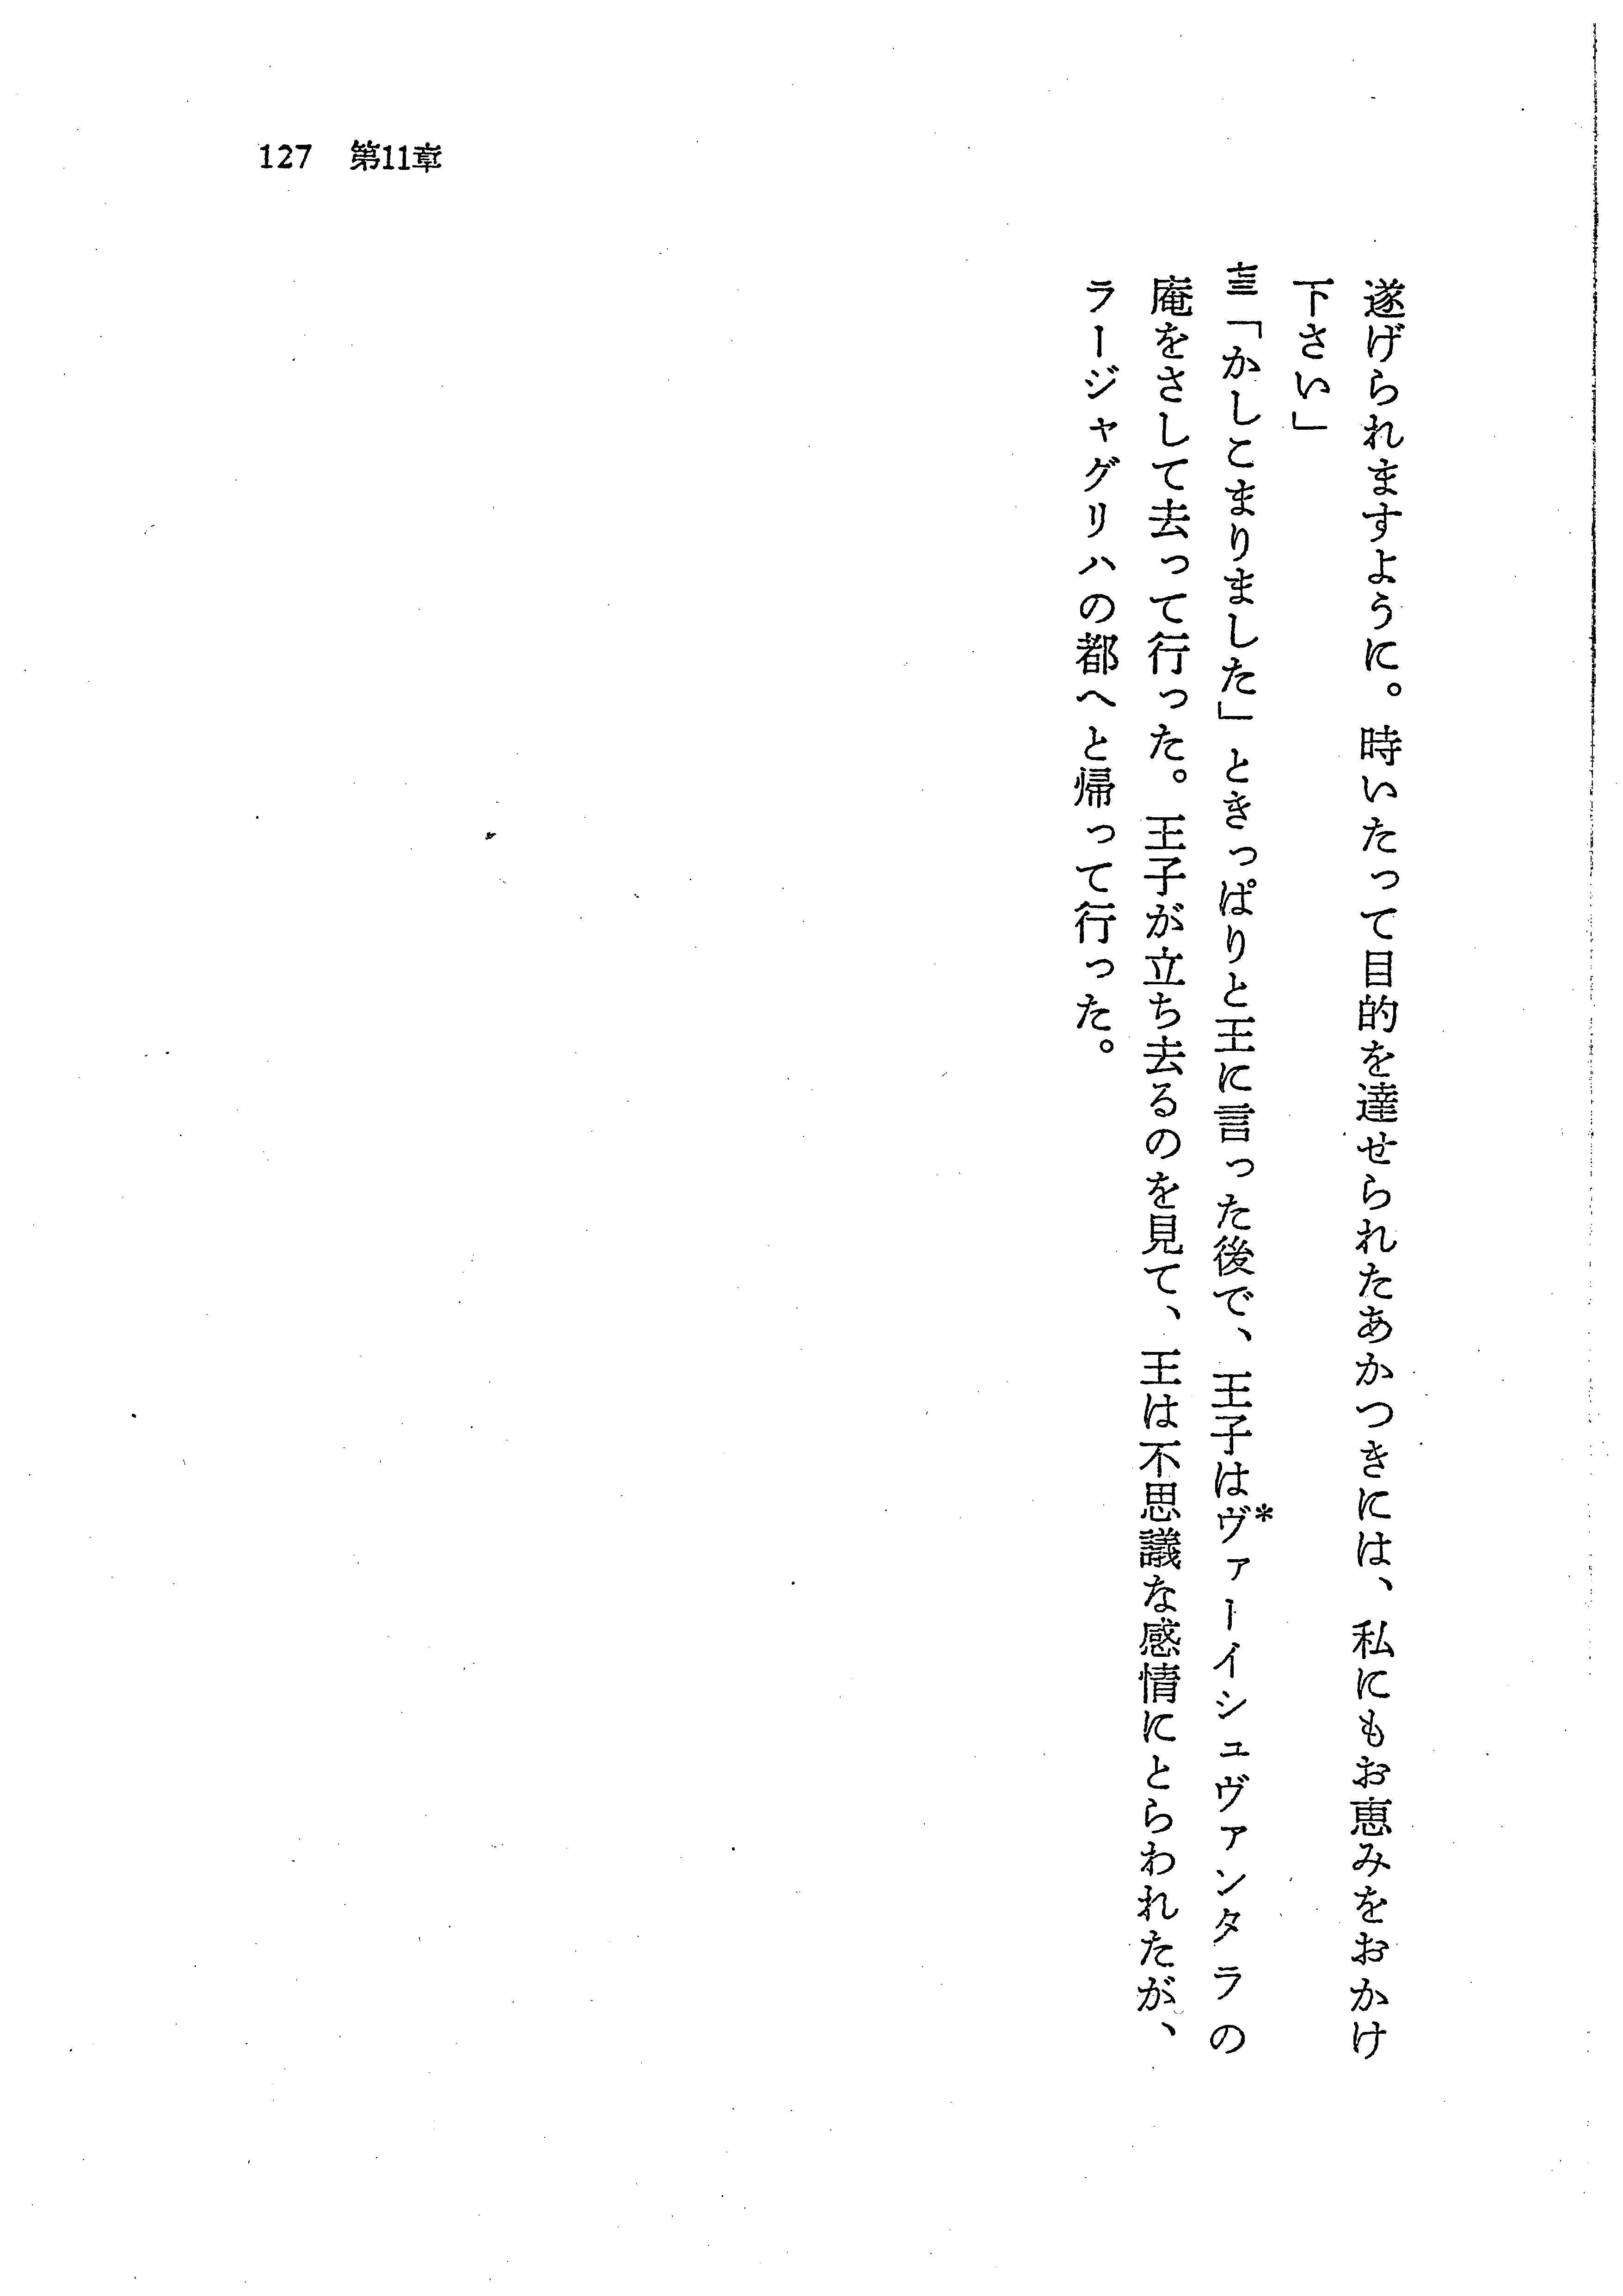 127　第11章
遂げられますように。時いたって目的を達せられたあかつきには、私にもお恵みをおかけ
下さい」
「かしこまりました」ときっぱりと王に言った後で、王子は*ヴァーイシュヴァンタラの
庵をさして去って行った。王子が立ち去るのを見て、王は不思議な感情にとらわれたが、
ラージャグリハの都へと帰って行った。